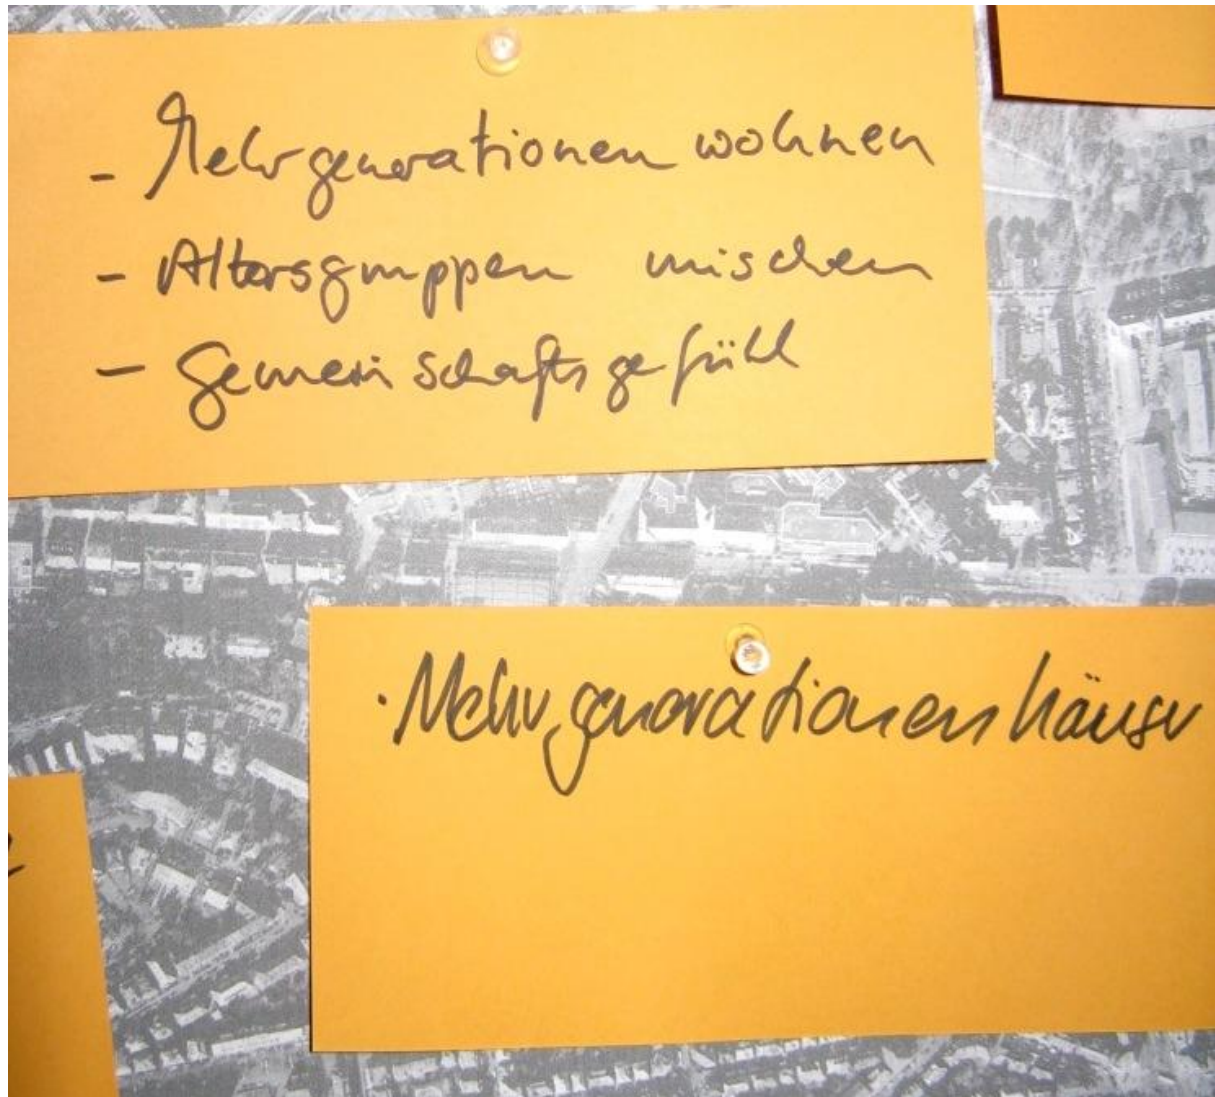 - Mehrgenerationen wohnen
- Altersgruppen mischen
- Gemeinschaftsgefühl
· Mehrgenerationenhäuser